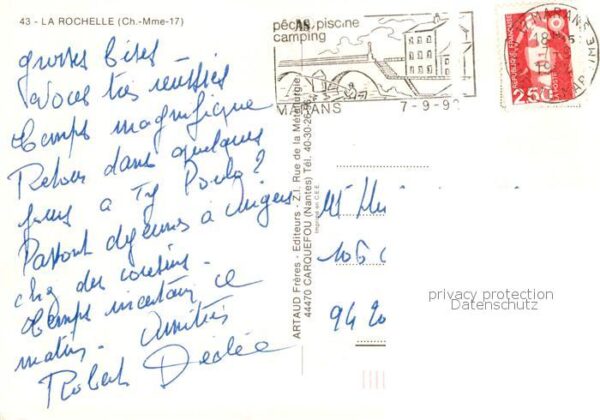 43 - LA ROCHELLE (Ch.-Mme-17)
grosses bises
Vacances très réussies
Temps magnifique
Retour dans quelques
jours à Ty
Partout déjeuner à Angers
chez des cousins.
Temps incertain ce
matin. Amitiés
Robert Dédée
pêche, piscine
camping
MARANS 7-9-92
MARANS
18
REPUBLIQUE FRANÇAISE
2,50
ARTAUD Frères - Editeurs - Z.I. Rue de la Métallurgie
44470 CARQUEFOU (Nantes) Tél. 40-30-26
Imprimé en C.E.E.
106
94 20
privacy protection
Datenschutz